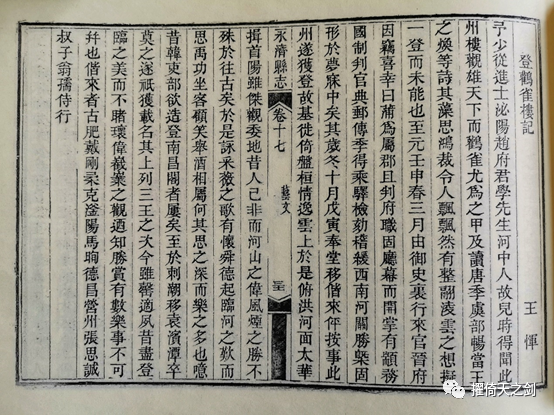 登鸛雀樓記
王惲
予少從進士泌陽趙府君學先生河中人故兒時得聞此
州樓觀雄天下而鸛雀尤為之甲及讀唐季虞部暢當王
之煥等詩其藻思鴻裁令人飄飄然有整翮凌雲之想擬
一登而未能也至元壬申春三月由御史裏行來官晉府
因竊喜幸曰蒲為屬郡且判府職固廳幕而簡掌有顓務
國制判官典郵傳季得乘驛檢劾稽緩西南河關勝槩固
形於夢寐中矣其歲冬十月戊寅奉堂移偕來伻按事此
州遂獲登故基徙倚盤桓情逸雲上於是俯洪河面太華
永濟縣志
卷十七
藝文
揖首陽雖傑觀委地昔人已非而河山之偉風煙之勝不
殊於往古矣於是詠采薇之歌有懷舜德起臨河之歎而
思禹功坐客顧笑舉酒相屬何其思之深而樂之多也噫
昔韓吏部欲造登南昌閣者屢矣至於刺潮移袁濱潭卒
莫之遂祇獲載名其上列三王之次今雖適夙昔盡登
臨之美而不睹瓌偉之觀迺知勝賞有數樂事不可
并也偕來者古肥戴剛柔克滏陽馬昫德昌營州張思誠
叔子翁孺侍行
擢倚天之剑